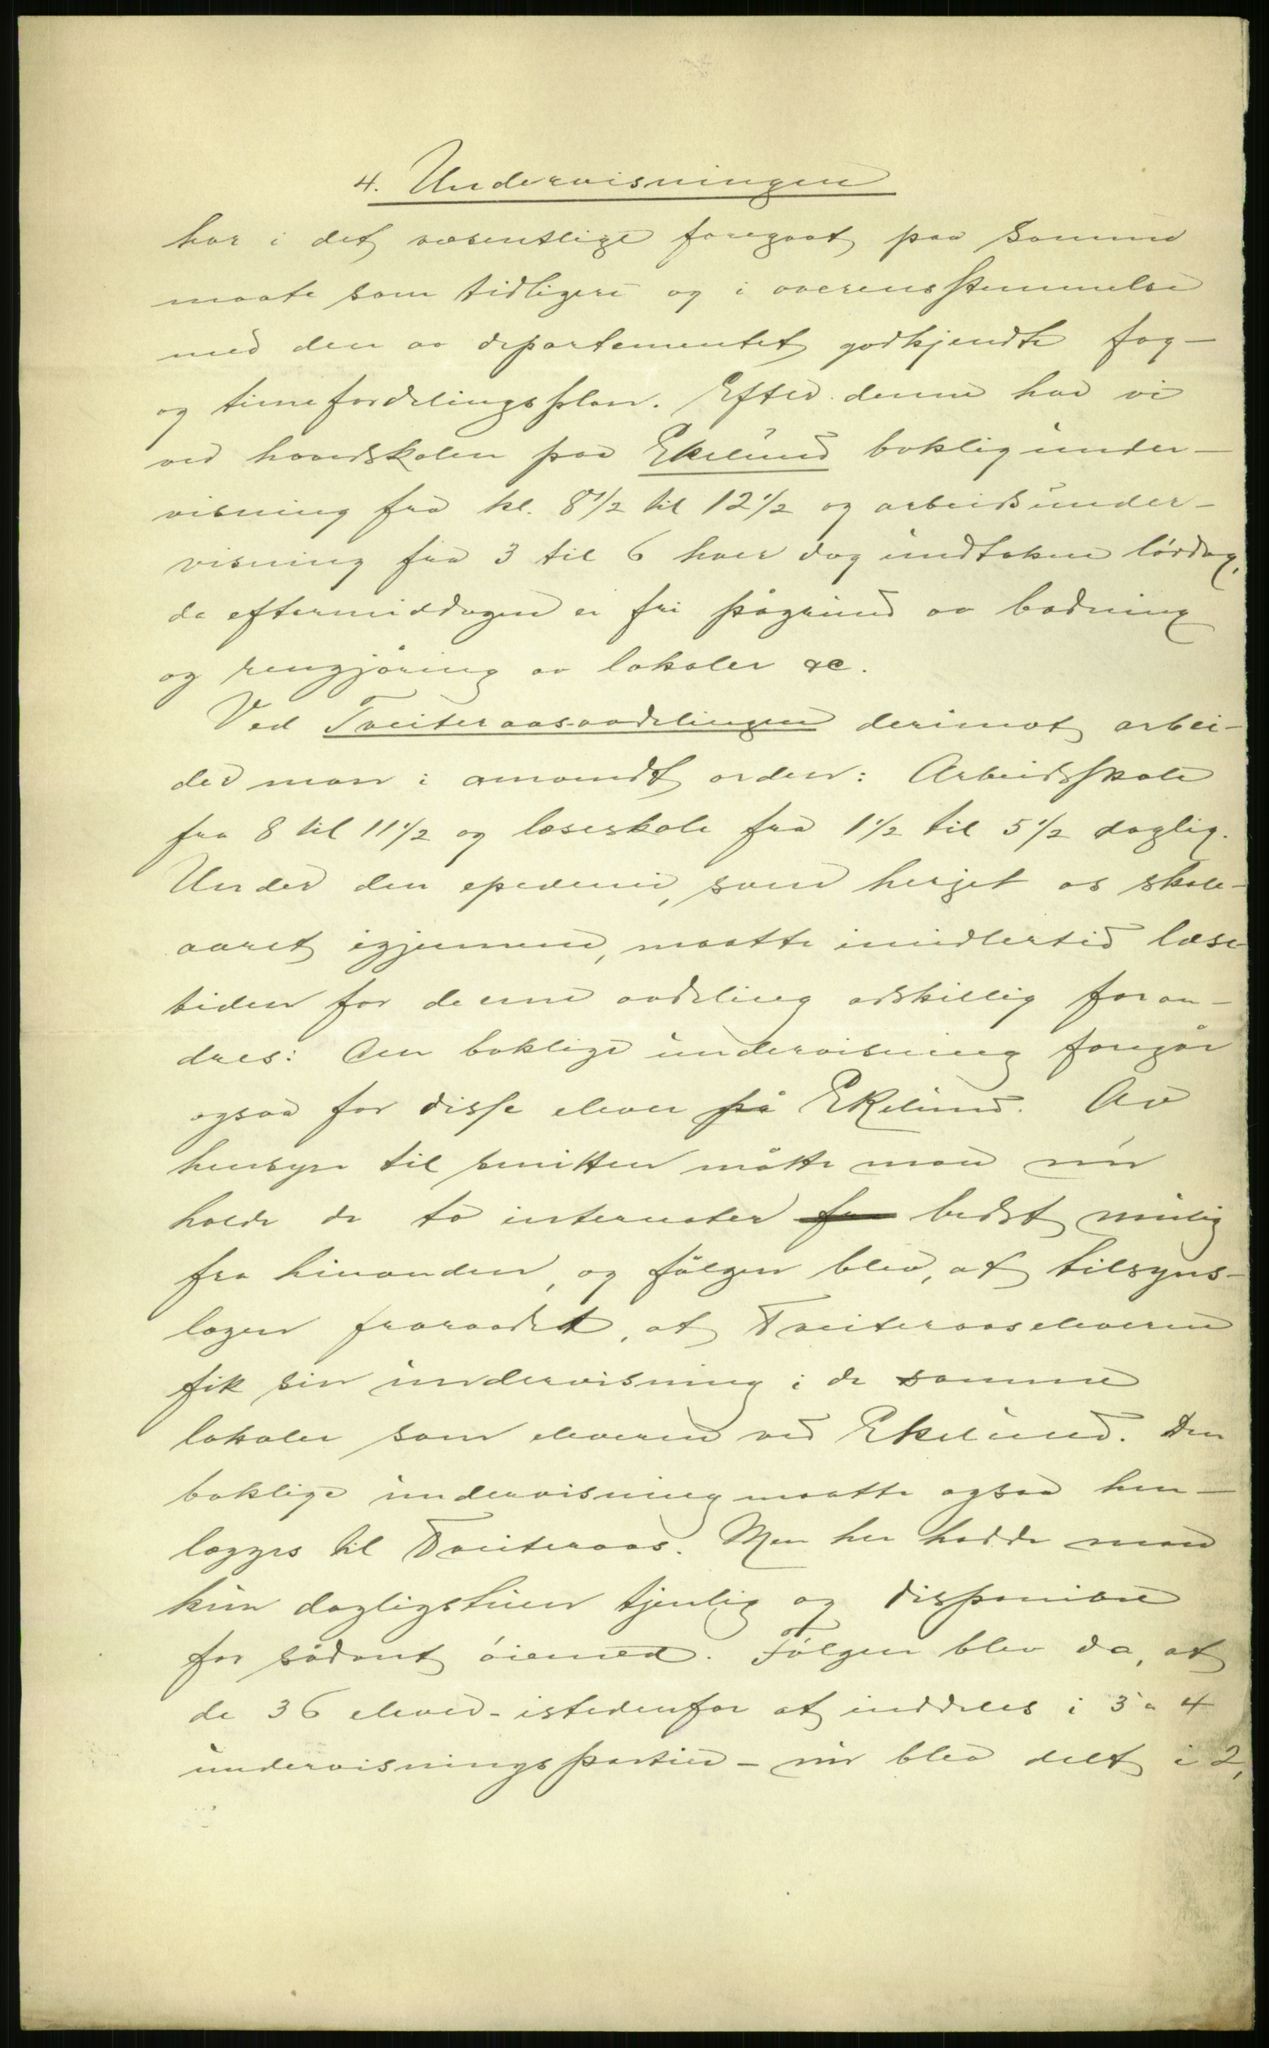 4. Undervisningen
har i det væsentlige foregaat paa samme
maate som tidligere og i overensstemmelse
med den av departementet godkjendte fag-
og timefordelingsplan. Efter denne har vi
ved hovedskolen paa Ekelund boklig under-
visning fra kl. 8 1/2 til 12 1/2 og arbeidsunder-
visning fra 3 til 6 hver dag undtaken lørdag,
da eftermiddagen er fri pågrund av badning
og rengjøring av lokaler &c.
Ved Tveiteraasavdelingen derimot arbei-
der man i omvendt orden: Arbeidsskole
fra 8 til 11 1/2 og læseskole fra 1 1/2 til 5 1/2 daglig.
Under den epedemi, som herjet os skole-
aaret igjennem, maatte imidlertid læse-
tiden for denne avdeling adskillig foran-
dres: Den boklige undervisning foregår
ogsaa for disse elever på Ekelund. Av
hensyn til smitten måtte man nu
holde de to internater fra bedst mulig
fra hinanden, og følgen blev, at tilsyns-
lægen fraraadet, at Tveiteraaseleverne
fik sin undervisning i de samme
lokaler som eleverne ved Ekelund. Den
boklige undervisning maatte ogsaa hen-
lægges til Tveiteraas. Men her hadde man
kun dagligstuen tjenlig og disponibel
for sådant øiemed. Følgen blev da, at
de 36 elever - istedenfor at inddeles i 3 a 4
undervisningspartier - nu blev delt i 2,